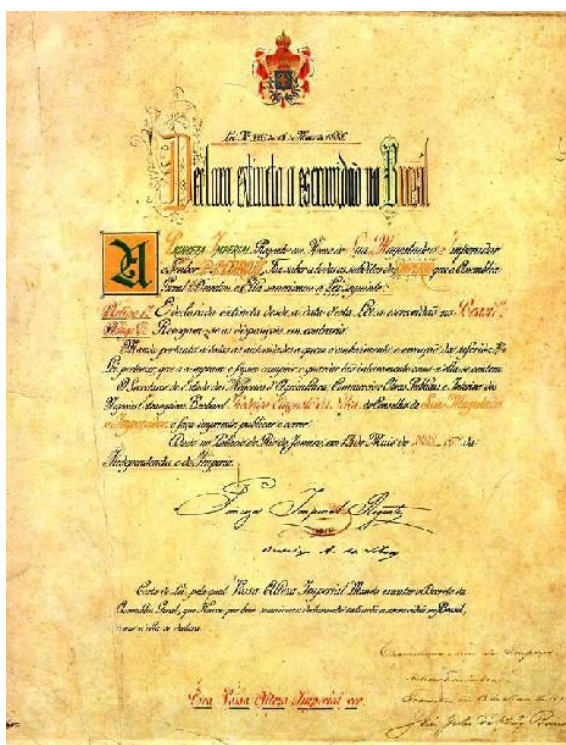 Lei Nº 3353 de 13 de Maio de 1888.
Declara extincta a escravidão no Brasil
A Princeza Imperial Regente em Nome de Sua Magestade o Imperador
o Senhor D. Pedro II, Faz saber a todos os subditos do Imperio que a Assembléa
Geral Decretou e Ella sanccionou a Lei seguinte:
Artigo 1º É declarada extincta desde a data d'esta Lei a escravidão no Brazil.
Artigo 2º Revogam-se as disposições em contrario.
Manda portanto a todas as autoridades a quem o conhecimento e execução da referida
Lei pertencer, que a cumpram e façam cumprir e guardar tão inteiramente como n'ella se contem.
O Secretario de Estado dos Negocios d'Agricultura, Commercio e Obras Publicas e Interino dos
Negocios Estrangeiros Bacharel Rodrigo Augusto da Silva, do Conselho de Sua Magestade
o Imperador, o faça imprimir publicar e correr.
Dado no Palacio do Rio de Janeiro, em 13 de Maio de 1888, 67º da
Independencia e do Imperio.
Princeza Imperial Regente
Rodrigo A. da Silva
Carta de Lei, pela qual Vossa Alteza Imperial Manda executar o Decreto da
Assembléa Geral, que Houve por bem sanccionar declarando extincta a escravidão no Brasil,
como n'ella se declara.
Para Vossa Alteza Imperial ver.
Chancellaria-mór do Imperio
13 de Maio de